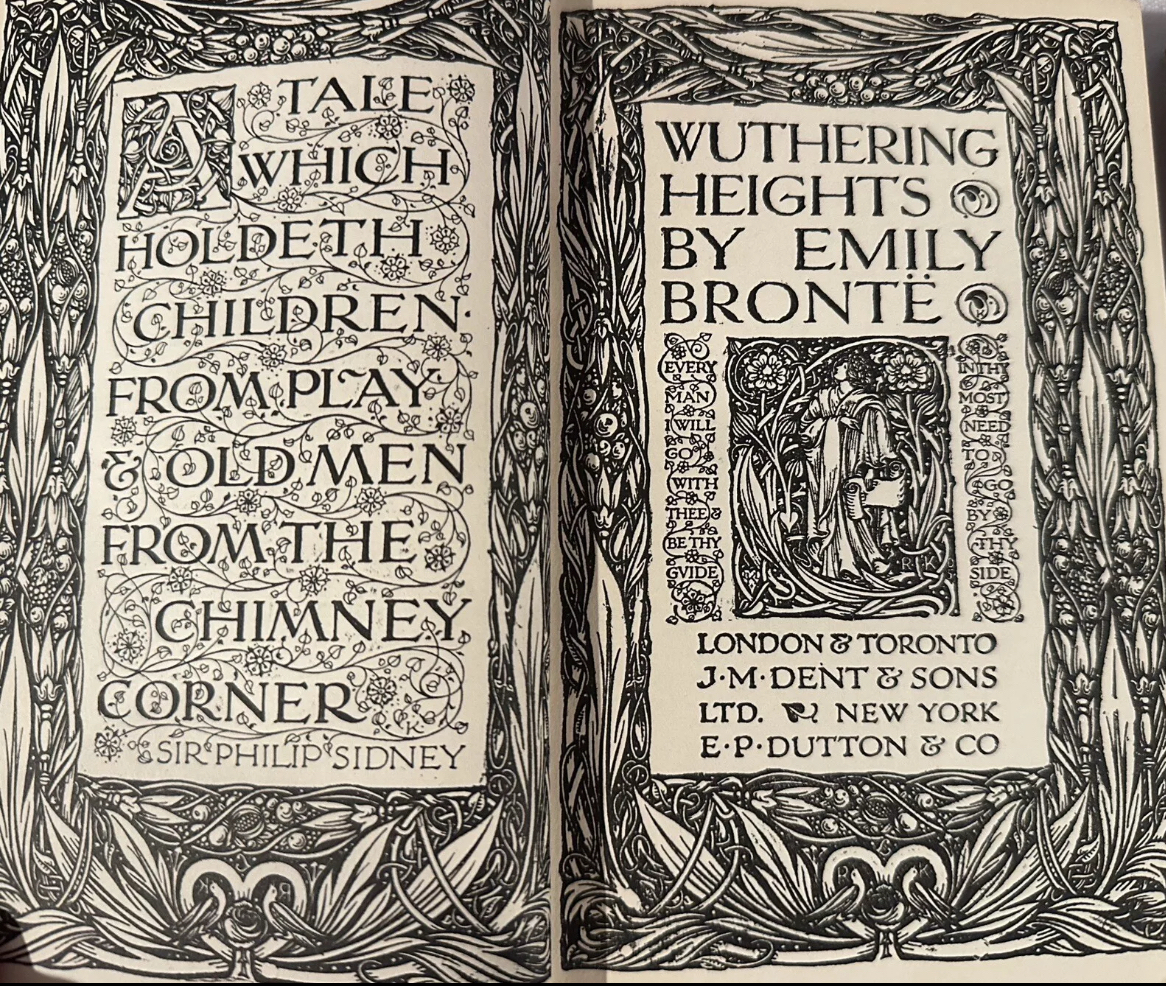 A TALE
WHICH
HOLDETH
CHILDREN
FROM PLAY
& OLD MEN
FROM THE
CHIMNEY
CORNER
SIR PHILIP SIDNEY
WUTHERING
HEIGHTS
BY EMILY
BRONTË
EVERY
MAN
I WILL
GO
WITH
THEE &
BE THY
GVIDE
IN THY
MOST
NEED
TO
GO
BY
THY
SIDE
RLK
LONDON & TORONTO
J·M·DENT & SONS
LTD. NEW YORK
E·P·DUTTON & CO